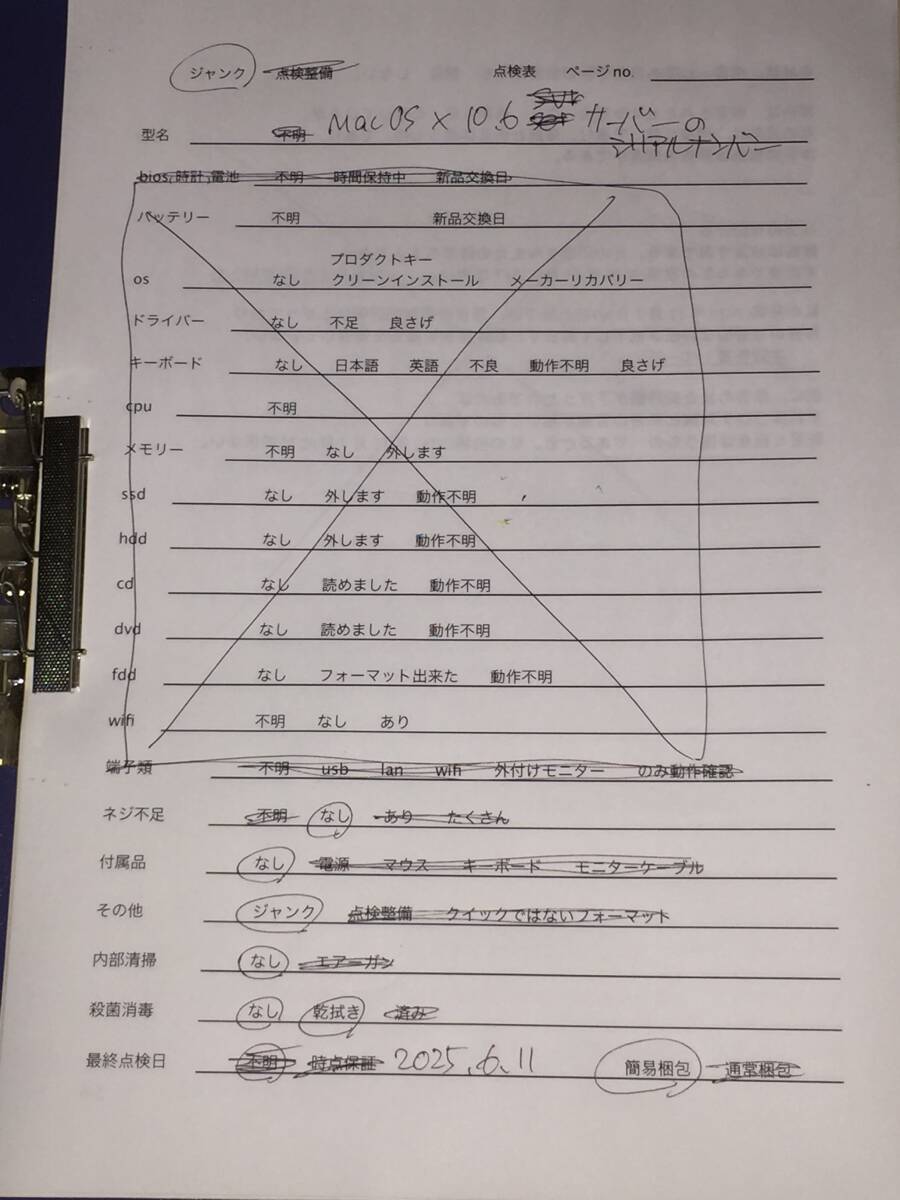 ジャンク 点検整備 点検表 ページno.
型名 不明 MacOS X 10.6 サーバーの
シリアルナンバー
bios,時計,電池 不明 時間保持中 新品交換日
バッテリー 不明 新品交換日
プロダクトキー
os なし クリーンインストール メーカーリカバリー
ドライバー なし 不足 良さげ
キーボード なし 日本語 英語 不良 動作不明 良さげ
cpu 不明
メモリー 不明 なし 外します
ssd なし 外します 動作不明
hdd なし 外します 動作不明
cd なし 読めました 動作不明
dvd なし 読めました 動作不明
fdd なし フォーマット出来た 動作不明
wifi 不明 なし あり
端子類 不明 usb lan wifi 外付けモニター のみ動作確認
ネジ不足 不明 なし あり たくさん
付属品 なし 電源 マウス キーボード モニターケーブル
その他 ジャンク 点検整備 クイックではないフォーマット
内部清掃 なし エアーガン
殺菌消毒 なし 乾拭き 済み
最終点検日 不明 時点保証 2025.6.11 簡易梱包 通常梱包